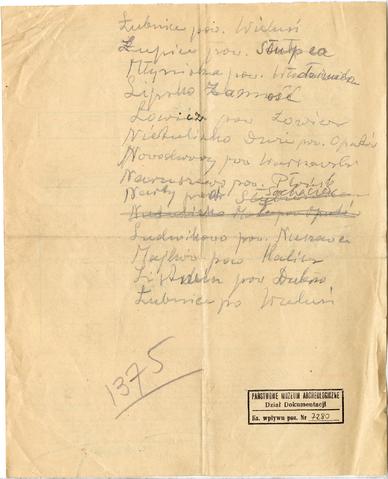 Łubnice pow. Wieluń
Łupice pow. Słupca
Młyniska pow.
Lipsko Zamość
Łowicz pow Łowicz
Nietulisko Duże pow. Opatów
Nowodwory pow Warszawski
Naruszewo pow. Płońsk
Narty pow. Sochaczew
Nietulisko Małe pow Opatów
Ludwikowo pow. Nieszawa
Majków pow Kalisz
pow Dubno
Łubnice po Wieluń
1375
PAŃSTWOWE MUZEUM ARCHEOLOGICZNE
Dział Dokumentacji
Ks. wpływu poz. Nr 7280